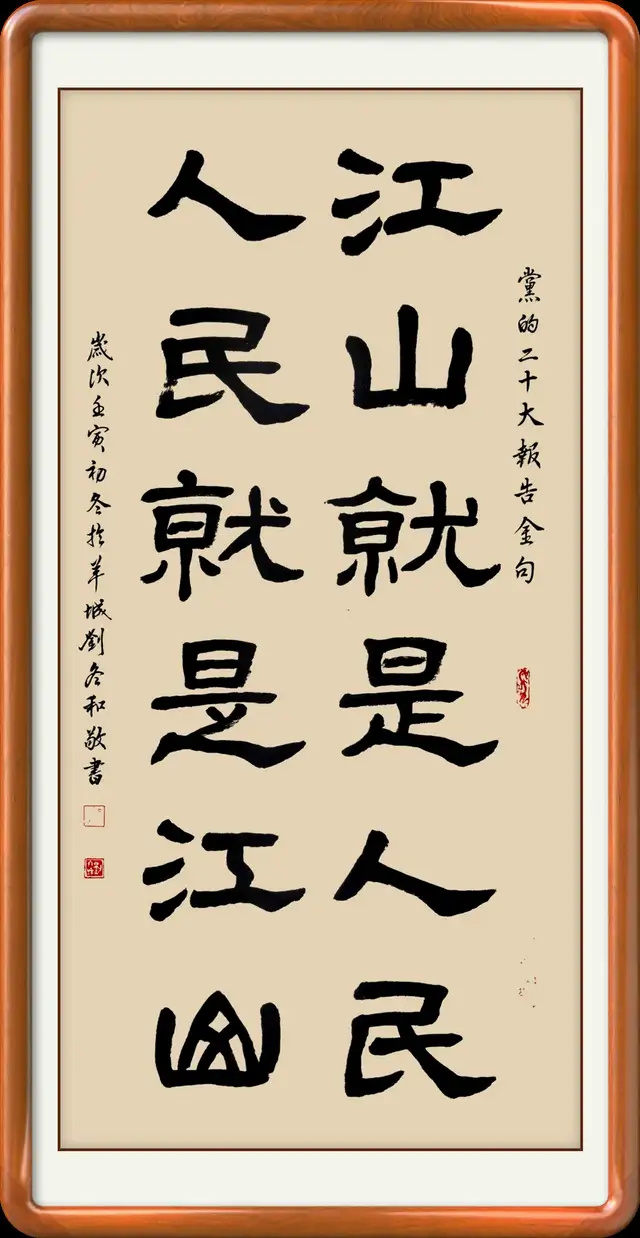 黨的二十大報告金句
江山就是人民
人民就是江山
歲次壬寅初冬於羊城劉冬和敬書